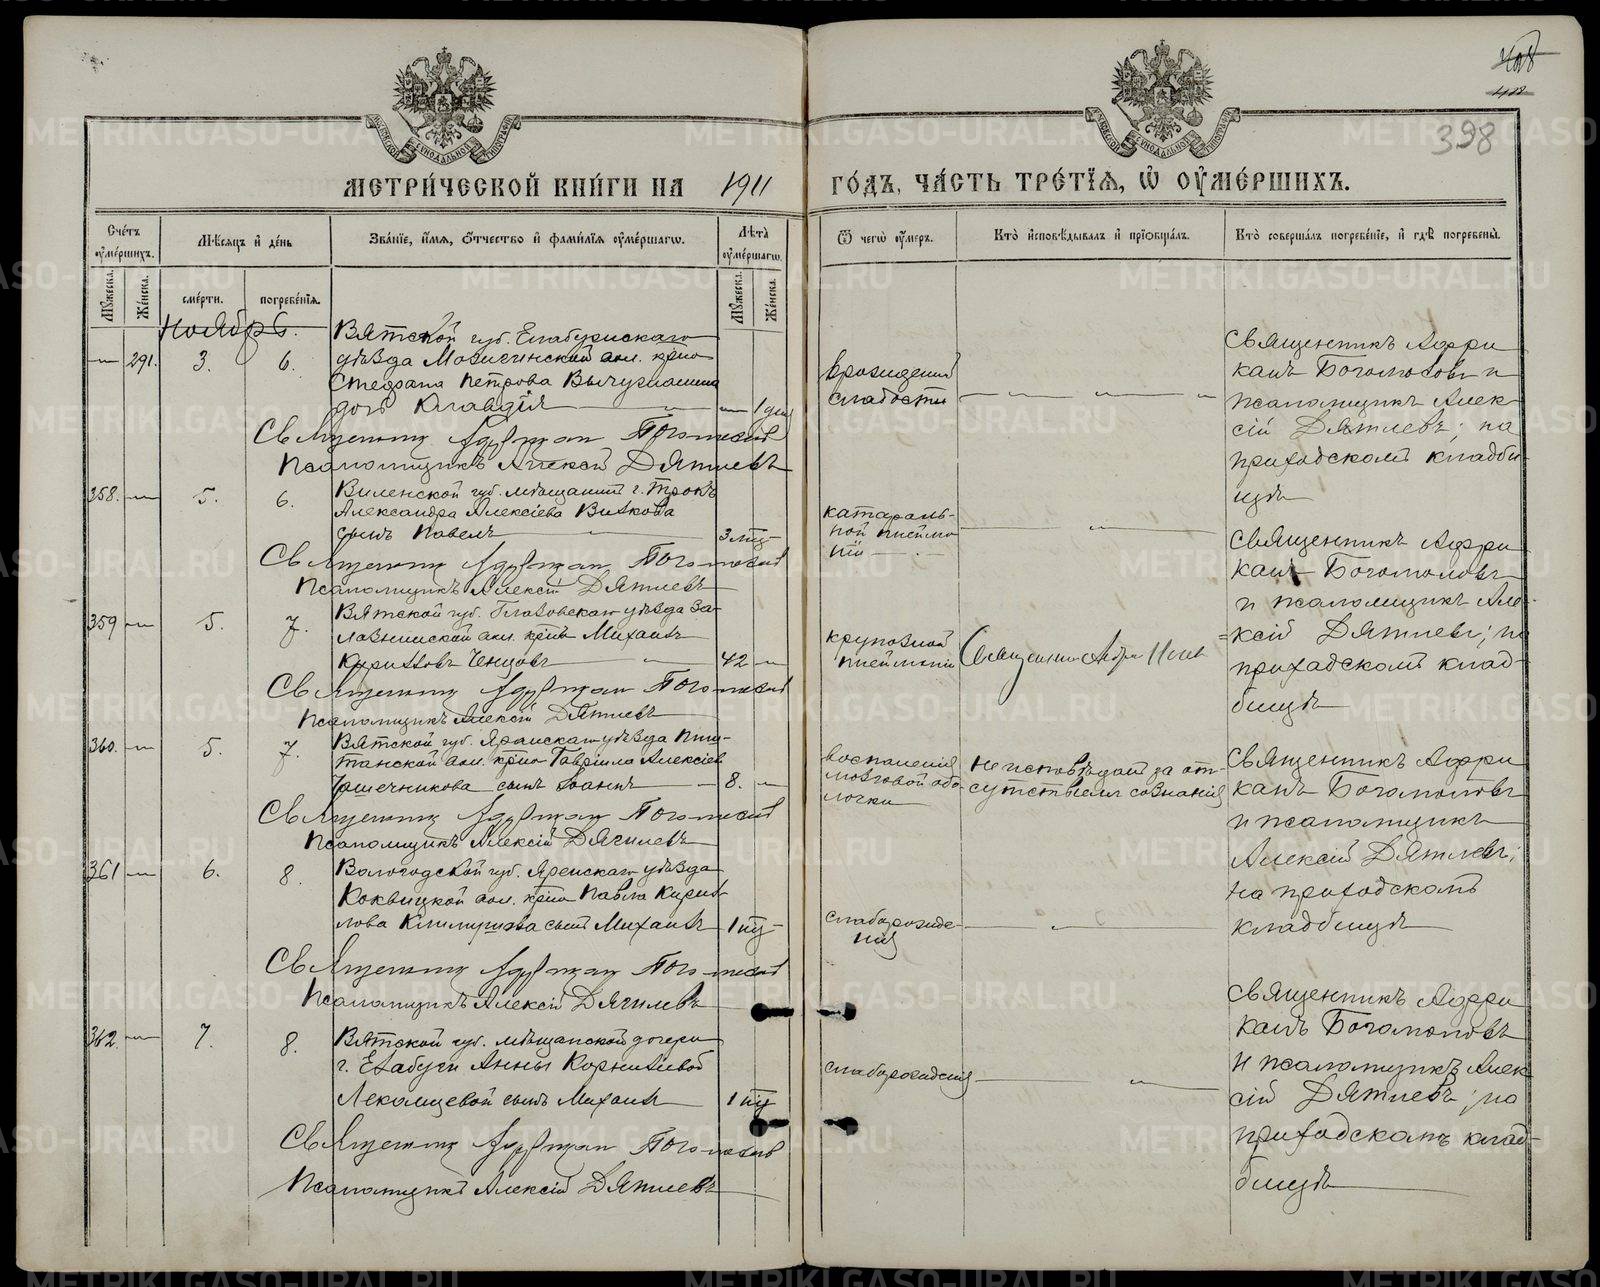 408
398
МЕТРИ́ЧЕСКОЙ КНИ́ГИ НА 1911 ГО́ДЪ, ЧА́СТЬ ТРЕ́ТІѦ, Ѡ ОУМЕ́РШИХЪ.
Сче́тъ оуме́ршихъ.
Мѣ́сяцъ и де́нь
Зва́ніе, и́мя, о́тчество и фами́лія оуме́ршагѡ.
Лѣ́та оуме́ршагѡ.
Ѿ чегѡ̀ оу́меръ.
Кто̀ исповѣ́дывалъ и пріобща́лъ.
Кто̀ соверша́лъ погребе́ніе, и гдѣ̀ погребены̀.
Му́жеска.
Же́нска.
сме́рти.
погребе́нія.
Му́жеска.
Же́нска.
Ноябрь.
— 291. 3. 6.
Вятской губ. Елабужскаго
уѣзда Можгинской вол. кр-на
Стефана Петрова Вычугжанина
дочь Клавдія — 1 дня
врожденной
слабости
Священникъ Афри
канъ Богомоловъ и
псаломщикъ Алек
сій Дятлевъ; на
приходскомъ кладби
щѣ
Священникъ Африкан Богомолов
Псаломщикъ Алексій Дятлевъ
358. — 5. 6.
Виленской губ. мѣщанина г. Трокъ
Александра Алексіева
сынъ Павелъ — 3 мѣс.
катараль-
ной пнеймо
ніи
Священникъ Афри
канъ Богомоловъ
и псаломщикъ Але-
ксій Дятлевъ; на
приходскомъ клад-
бищѣ
Священникъ Африкан Богомолов
Псаломщикъ Алексій Дятлевъ
359 — 5. 7.
Вятской губ. Глазовскаго уѣзда За-
лазнинской вол. кр-нъ Михаилъ
Ченцовъ — 42 —
крупозной
пнеймоніи
Священникъ
Священникъ Африкан Богомолов
Псаломщикъ Алексій Дятлевъ
360. — 5. 7.
Вятской губ. Яранскаго уѣзда Пиш-
танской вол. кр-на Гавріила Алексіева
сынъ Іоаннъ — 8. —
воспаленія
мозговой обо-
лочки
не исповѣдан за от-
сутствіемъ сознанія
Священникъ Афри
канъ Богомоловъ
и псаломщикъ
Алексій Дятлевъ;
на приходскомъ
кладбищѣ
Священникъ Африкан Богомолов
Псаломщикъ Алексій Дятлевъ
361 — 6. 8.
Вологодской губ. Яренскаго уѣзда
Коквицкой вол. кр-на Павла Кирил-
лова сынъ Михаилъ 1 нд.
слаборожде-
нія
Священникъ Афри
канъ Богомоловъ
и псаломщикъ Алек
сій Дятлевъ; на
приходскомъ клад-
бищѣ
Священникъ Африкан Богомолов
Псаломщикъ Алексій Дятлевъ
362. — 7. 8.
Вятской губ. мѣщанской дочери
г. Елабуги Анны Корниліевой
Лекомцевой сынъ Михаилъ 1 нд.
слаборожденія
Священникъ Африкан Богомолов
Псаломщикъ Алексій Дятлевъ